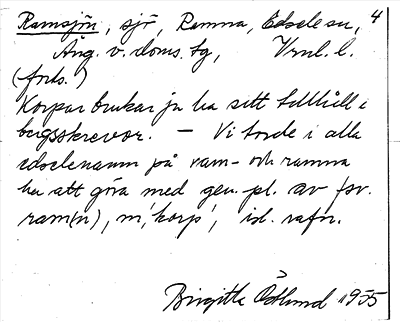 Ramsjön, sjö, Ramna, Edsele sn, 4
Ång. v. doms. tg, Vrnl. l.
(forts.)
Korpar brukar ju ha sitt tillhåll i
bergsskrevor. – Vi torde i alla
edselenamn på ram- och ramna
ha att göra med gen. pl. av fsv.
ram(n), m, 'korp', isl. rafn.
Birgitta Östlund 1955